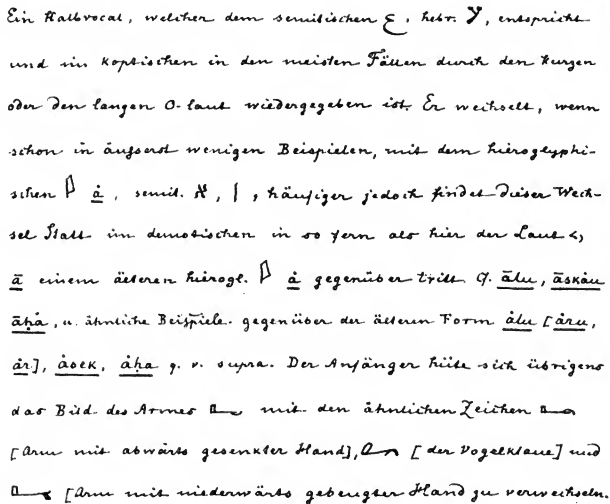 Ein Halbvocal, welcher dem semitischen ع, hebr. ע, entspricht
und im koptischen in den meisten Fällen durch den kurzen
oder den langen O-laut wiedergegeben ist. Er wechselt, wenn
schon in äußerst wenigen Beispielen, mit dem hieroglyphi-
schen 𓇋 ȧ, semit. א, ا, häufiger jedoch findet dieser Wech-
sel Statt im demotischen in so fern als hier der Laut <,
ā einem älteren hierogl. 𓇋 ȧ gegenüber tritt. Cf. ālu, āskȧu
āḥȧ, u. ähnliche Beispiele. gegenüber der älteren Form ȧlu [ȧru,
ȧr], ȧsek, ȧḥa q. v. supra. Der Anfänger hüte sich übrigens
das Bild des Armes 𓂝 mit den ähnlichen Zeichen
[Arm mit abwärts gesenkter Hand], [der Vogelklaue] und
[Arm mit niederwärts gebeugter Hand zu verwechseln.